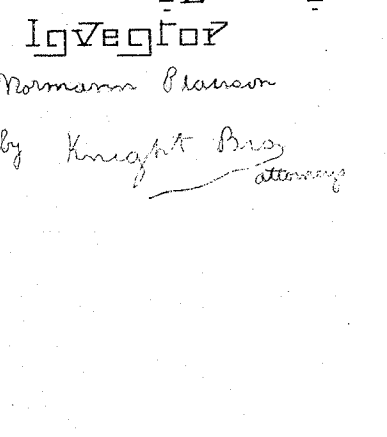 Inventor
Normann
by Knight Bros
attorneys